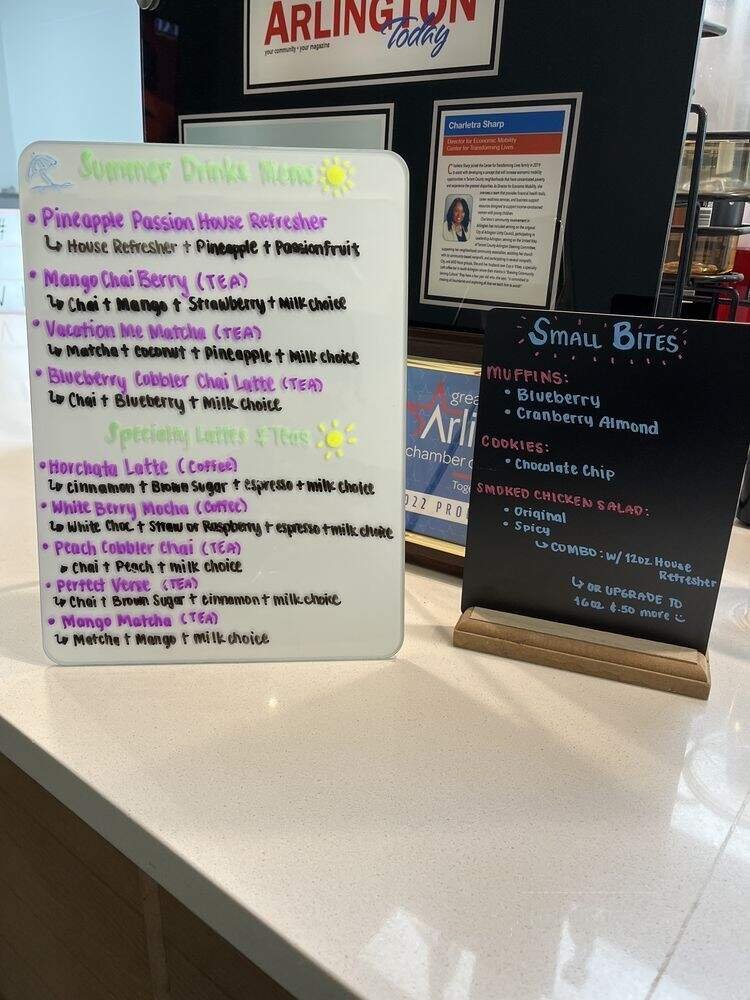 ARLINGTON
Today
your community • your magazine
Charletra Sharp
Director for Economic Mobility
Center for Transforming Lives
Summer Drinks Menu
• Pineapple Passion House Refresher
↳ House Refresher + Pineapple + Passionfruit
• Mango Chai Berry (TEA)
↳ Chai + Mango + Strawberry + Milk choice
• Vacation Me Matcha (TEA)
↳ Matcha + Coconut + Pineapple + Milk choice
• Blueberry Cobbler Chai Latte (TEA)
↳ Chai + Blueberry + Milk choice
Specialty Lattes & Teas
• Horchata Latte (Coffee)
↳ Cinnamon + Brown Sugar + espresso + milk choice
• White Berry Mocha (Coffee)
↳ White Choc + Straw or Raspberry + espresso + milk choice
• Peach Cobbler Chai (TEA)
• Chai + Peach + milk choice
• Perfect Verse (TEA)
↳ Chai + Brown Sugar + cinnamon + milk choice
• Mango Matcha (TEA)
↳ Matcha + Mango + milk choice
grea
Arli
chamber o
Toge
022 PRO
SMALL BITES
MUFFINS:
• Blueberry
• Cranberry Almond
COOKIES:
• Chocolate Chip
SMOKED CHICKEN SALAD:
• Original
• Spicy
↳ COMBO: W/ 12oz House
Refresher
↳ OR UPGRADE TO
16oz $.50 more